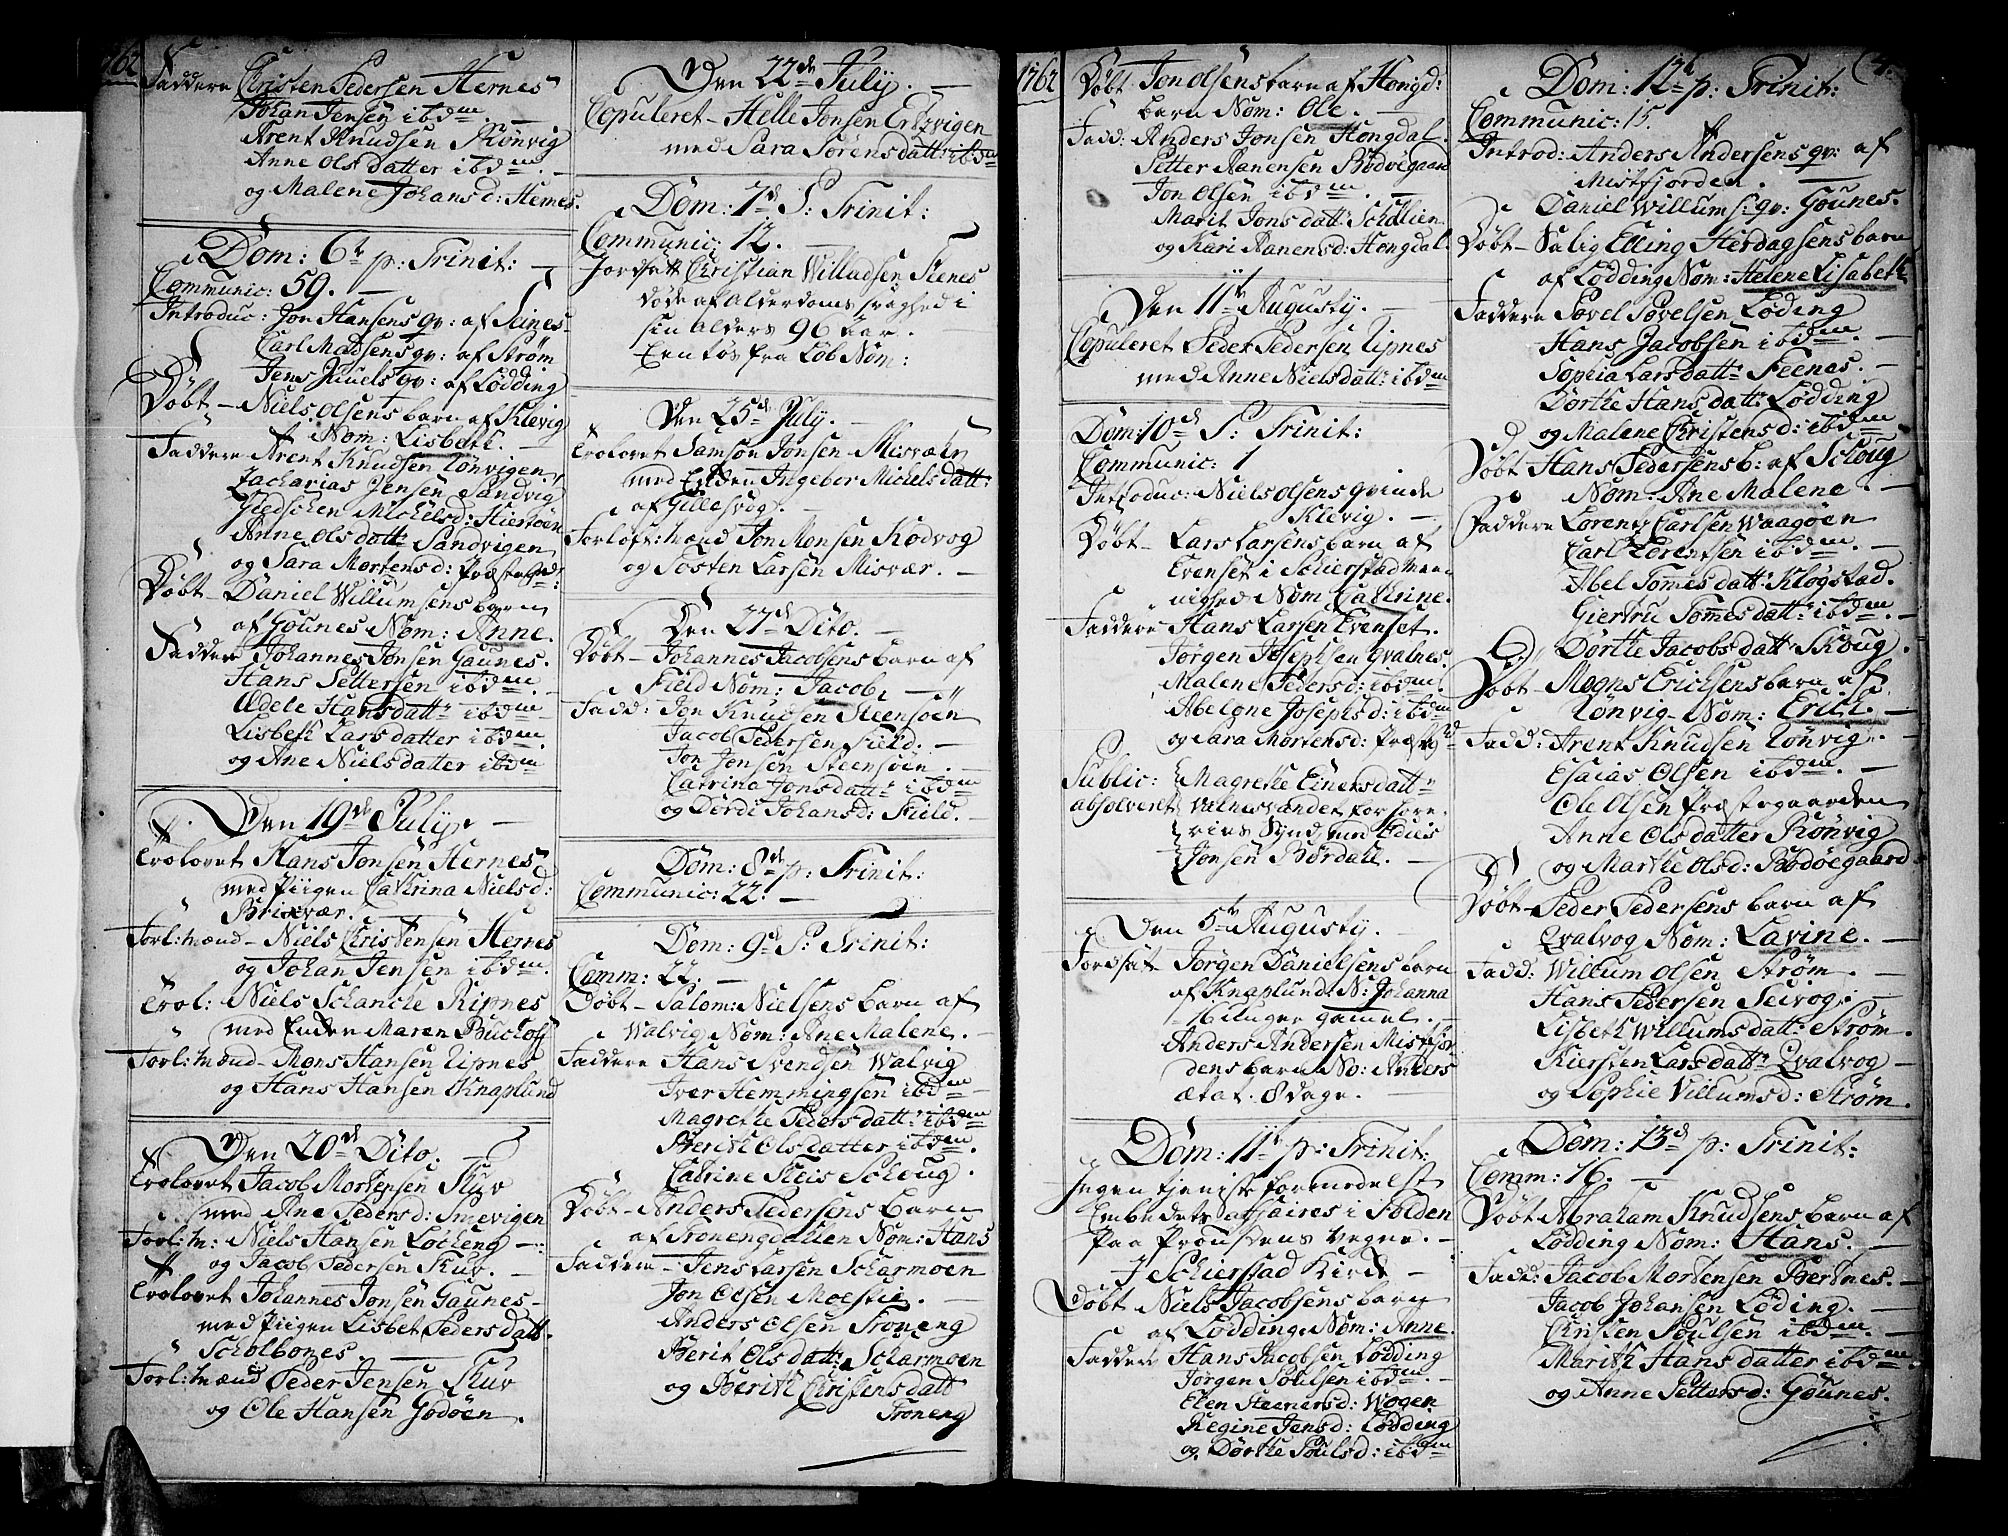 1762
Faddere Christen Pedersen Hernes
Johan Jensen ibdm.
Arent Knudsen Rönvig
Anne Olsdatter ibdm.
og Malene Johansd: Hernes.
Dom: 6te p: Trinit:
Communic: 59.
Introduc: Jon Hansens qv: af Seines
Carl Madsens qv: af Ström
Jens Juuels qv: af Lödding
Döbt – Niels Olsens barn af Klevig
Nom: Lisbeth.
Faddere Arent Knudsen Rönvigen
Zacharias Jensen Sandvig
Michelsd: Hiertöen
Anne Olsdattr Sandvigen
og Sara Mortensd: Præstegrd:
Döbt – Daniel Willumsens barn
af Gounes Nom: Anne.
Faddere Johannes Jonsen Gaunes.
Hans Pettersen ibdm.
Ædele Hansdattr ibdm
Lisbeth Larsdatter ibdm.
og Ane Nielsdatter ibdm
Den 19de July.
Trolovet Hans Jonsen Hernes
med Piigen Cathrina Nielsd:
Brixvær.
Forl: mænd – Niels Christensen Hernes
og Johan Jensen ibdm.
Trol: Niels Schancke Ripnes
med Enken Maren Bucholf
Forl: mænd – Mons Hansen Tipnes
og Hans Hansen Knaplund
Den 20de Dito.
Trolovet Jacob Mortensen Skuv
med Ane Pedersd: Smevigen
Forl: m: Niels Hansen Löcheng
og Jacob Pedersen Skuv.
Trolovet Johannes Jonsen Gaunes
med Piigen Lisbet Pedersdatt.
Scholbones
Forl: mænd Peder Jensen Skuv
og Ole Hansen Godöen.
Den 22de July.
Copuleret – Helle Jonsen Ertzvigen
med Sara Sörensdatt: ibdm
Dom: 7de P: Trinit:
Communic: 12.
Jordsatt Christian Willadsen Fienes
döde af Alderdoms svaghed i
sin Alders 96 Aar.
Een tös fra Löb Nom:
Den 25de July.
Trolovet Samson Jonsen Misvær
med Enken Ingebor Michelsdatt:
af Gillesvog.
Forloft: mænd Jon Monsen Kodvog
og Tosten Larsen Misvær.
Den 27de Dito.
Döbt – Johannes Jacobsens barn af
Field Nom: Jacob
Fadd: Jon Knudsen Steensöen
Jacob Pedersen Field.
Jon Jonsen Steensöen.
Catrina Jonsdattr ibdm
og Dordi Johansd: Field.
Dom: 8de p: Trinit:
Communic: 22.
Dom: 9de P: Trinit:
Comm: 22.
Döbt – Salom: Nielsens barn af
Walvig Nom: Ane Malene.
Faddere Hans Svendsen Walvig
Iver Hemmingsen ibdm
Magrethe Pedersdatt: ibdm
Berith Olsdatter ibdm.
Catrine Scheug.
Döbt – Anders Pedersens barn
af Tronengdallen Nom: Hans
Faddere – Jens Larsen Scharmoen
Jon Olsen Moestie.
Anders Olsen Troneng
Berit Olsdatt: Scharmoen
og Berith Christensdatt
Troneng
1762
Döbt Jon Olsens barn af Hongd:
barn Nom: Ole.
Fadd: Anders Jonsen Hongdal.
Petter Ranensen Bodöegaard
Jon Olsen ibdm.
Marit Jonsdatt: Schölien
og Kari Ranensd: Hongdal.
Den 11te Augusty.
Copuleret Peder Pedersen Tipnes
med Anne Nielsdatt: ibdm
Dom: 10de P: Trinit:
Communic: 1
Introduc: Niels Olsens qvinde
Klevig.
Döbt – Lars Larsens barn af
Evenset i Schierstad meenighed
Nom: Cathrine.
Faddere Hans Larsen Evenset.
Jörgen Josephsen Qvalnes.
Malene Pedersd: ibdm.
Abelone Josephsd: ibdm
og Sara Mortensd: Præstegrd
Public: Magrethe Einersdattr
absolveret Valnesvandet for
Synd med Edvis
Jonsen Bordall.
Den 5te Augusty.
Jordsat Jörgen Danielsens barn
af Knaplund: N: Johanna
16 Uuger gamel.
Anders Andersen Mistfjordens
barn No: Anders
ætat. 8 dage.
Dom: 11te p: Trinit:
Ingen tjeniste formedelst
Embedets affaires i Folden
Paa Proustens Vegne.
I Schierstad Kirke
Döbt Niels Jacobsens barn
af Lödding. Nom: Anne.
Faddere Hans Jacobsen Lödding
Jörgen Poulsen ibdm.
Elen Steenersd: Wogen
Regine Jensd: Lödding
og Dorthe Poulsd: ibdm
4.
Dom: 12te p: Trinit:
Communic: 15.
Introd: Anders Andersens qv: af
Mistfjorden.
Daniel Willums: qv: Gounes.
Döbt – Salig Elling Herdagsens barn
af Lödding Nom: Helene Lisabeth
Faddere Povel Povelsen Löding
Hans Jacobsen ibdm.
Sophia Larsdattr Feenes.
Dorthe Hansdatt: Lödding
og Malene Christensd: ibdm
Döbt Hans Pedersens b: af Schoug
Nom: Ane Malene.
Faddere Lorentz Carlsen Waagöen
Carl Lorentsen ibdm.
Abel Tomesdatt: Klogstad.
Giertru Tomesdatt: ibdm
Dorthe Jacobsdatt: Skoug.
Döbt – Mogns Erichsens barn af
Rönvig – Nom: Erich.
Fadd: Arent Knudsen Rönvig.
Esaias Olsen ibdm.
Ole Olsen Præstegaarden
Anne Olsdatter Rönvig
og Marthe Olsd: Bodöegaard
Döbt – Peder Pedersens barn af
Qvalvog Nom: Lavine.
Fadd: Willum Olsen Ström.
Hans Pedersen Seivog.
Lisbeth Willumsdatt: Ström.
Kiersten Larsdattr Qvalvog
og Sophie Villumsd: Ström.
Dom: 13de p: Trinit:
Comm: 16.
Döbt Abraham Knudsens barn af
Lödding Nom: Hans.
Fadd: Jacob Mortensen Bertnes.
Jacob Johansen Löding.
Christen Poulsen ibdm.
Marith Hansdatter ibdm.
og Anne Pettersd: Gounes.